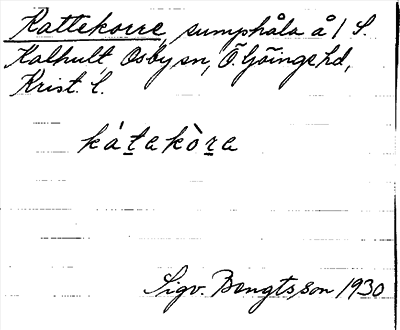 Kattekorre, sumphåla å / S.
Kalhult Osby sn, Ö. Göinge hd,
Krist. l.
káṯakòṟa
Sigv. Bengtsson 1930